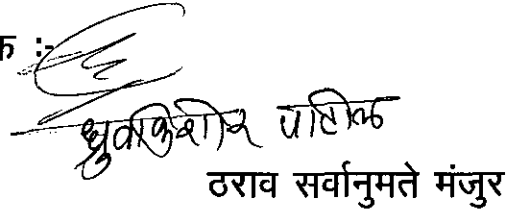 क :-
ध्रुवकिशोर पाटील
ठराव सर्वानुमते मंजुर